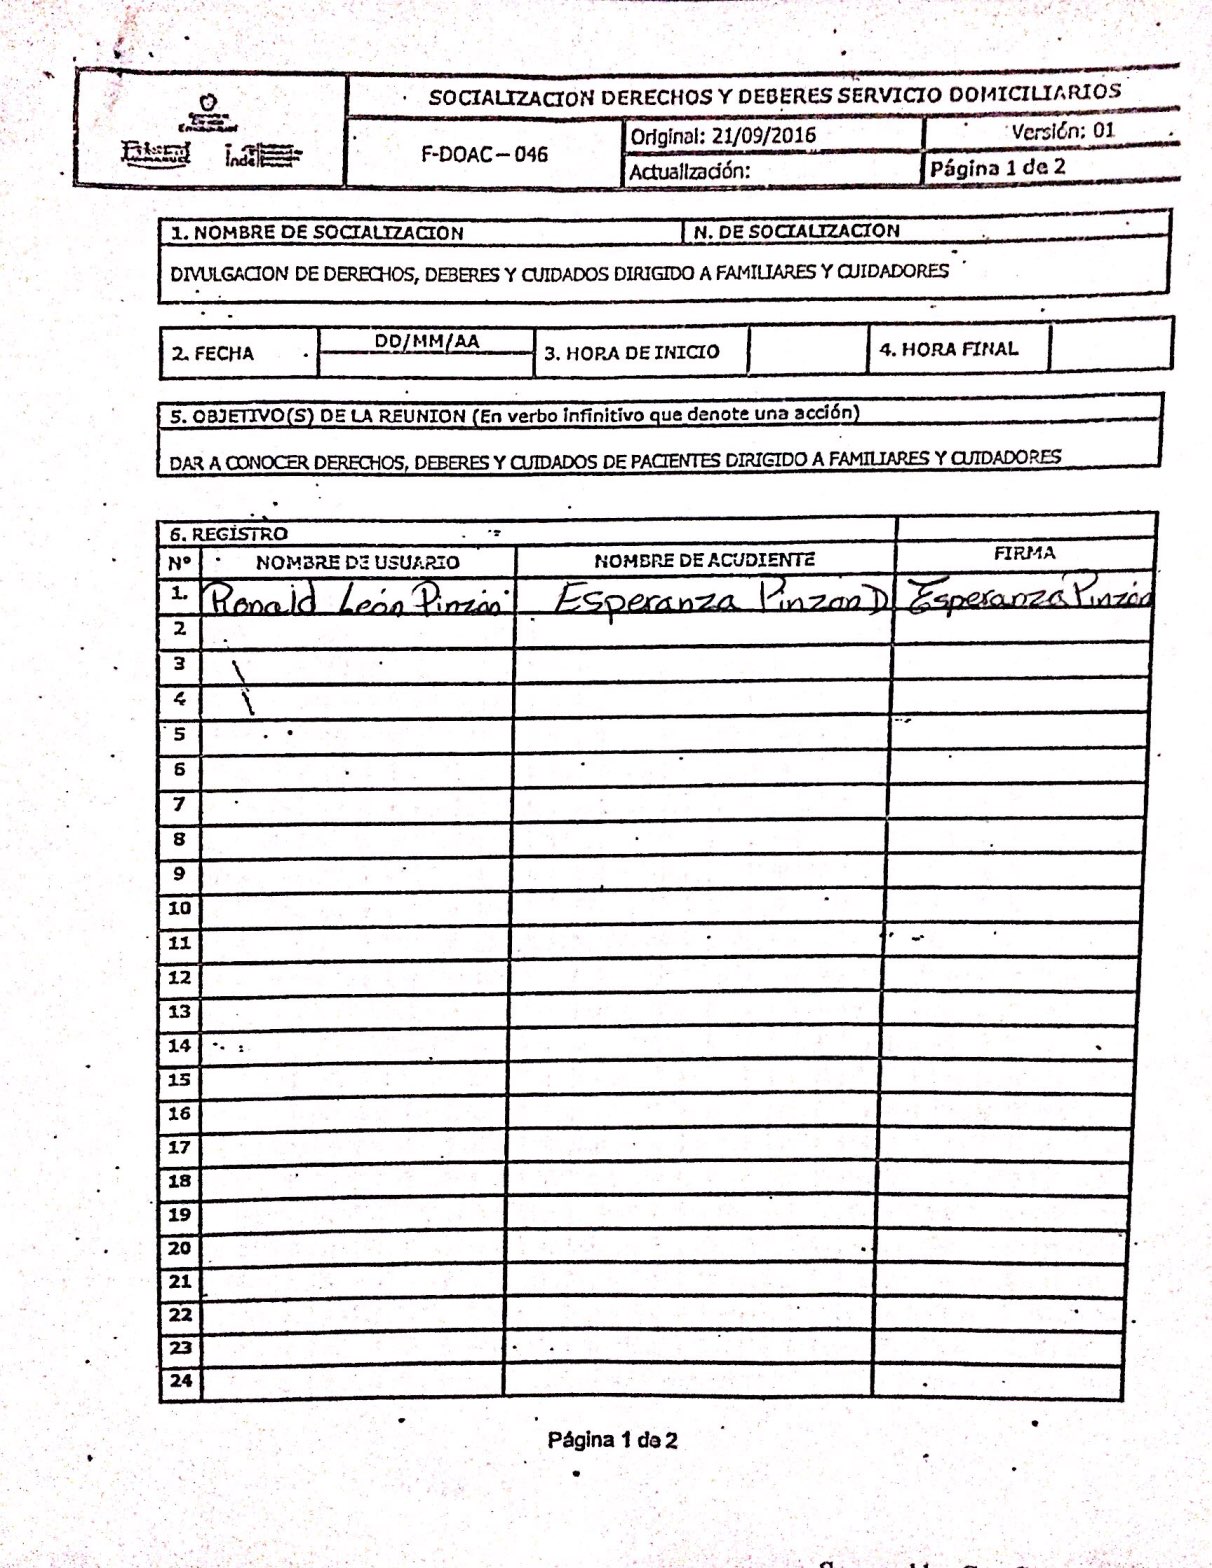 SOCIALIZACION DERECHOS Y DEBERES SERVICIO DOMICILIARIOS
F-DOAC – 046
Original: 21/09/2016
Versión: 01
Actualización:
Página 1 de 2
1. NOMBRE DE SOCIALIZACION
N. DE SOCIALIZACION
DIVULGACION DE DERECHOS, DEBERES Y CUIDADOS DIRIGIDO A FAMILIARES Y CUIDADORES
2. FECHA
DD/MM/AA
3. HORA DE INICIO
4. HORA FINAL
5. OBJETIVO(S) DE LA REUNION (En verbo infinitivo que denote una acción)
DAR A CONOCER DERECHOS, DEBERES Y CUIDADOS DE PACIENTES DIRIGIDO A FAMILIARES Y CUIDADORES
6. REGISTRO
Nº NOMBRE DE USUARIO NOMBRE DE ACUDIENTE FIRMA
1. Ronald León Pinzón Esperanza Pinzon D Esperanza Pinzón
2
3
4
5
6
7
8
9
10
11
12
13
14
15
16
17
18
19
20
21
22
23
24
Página 1 de 2